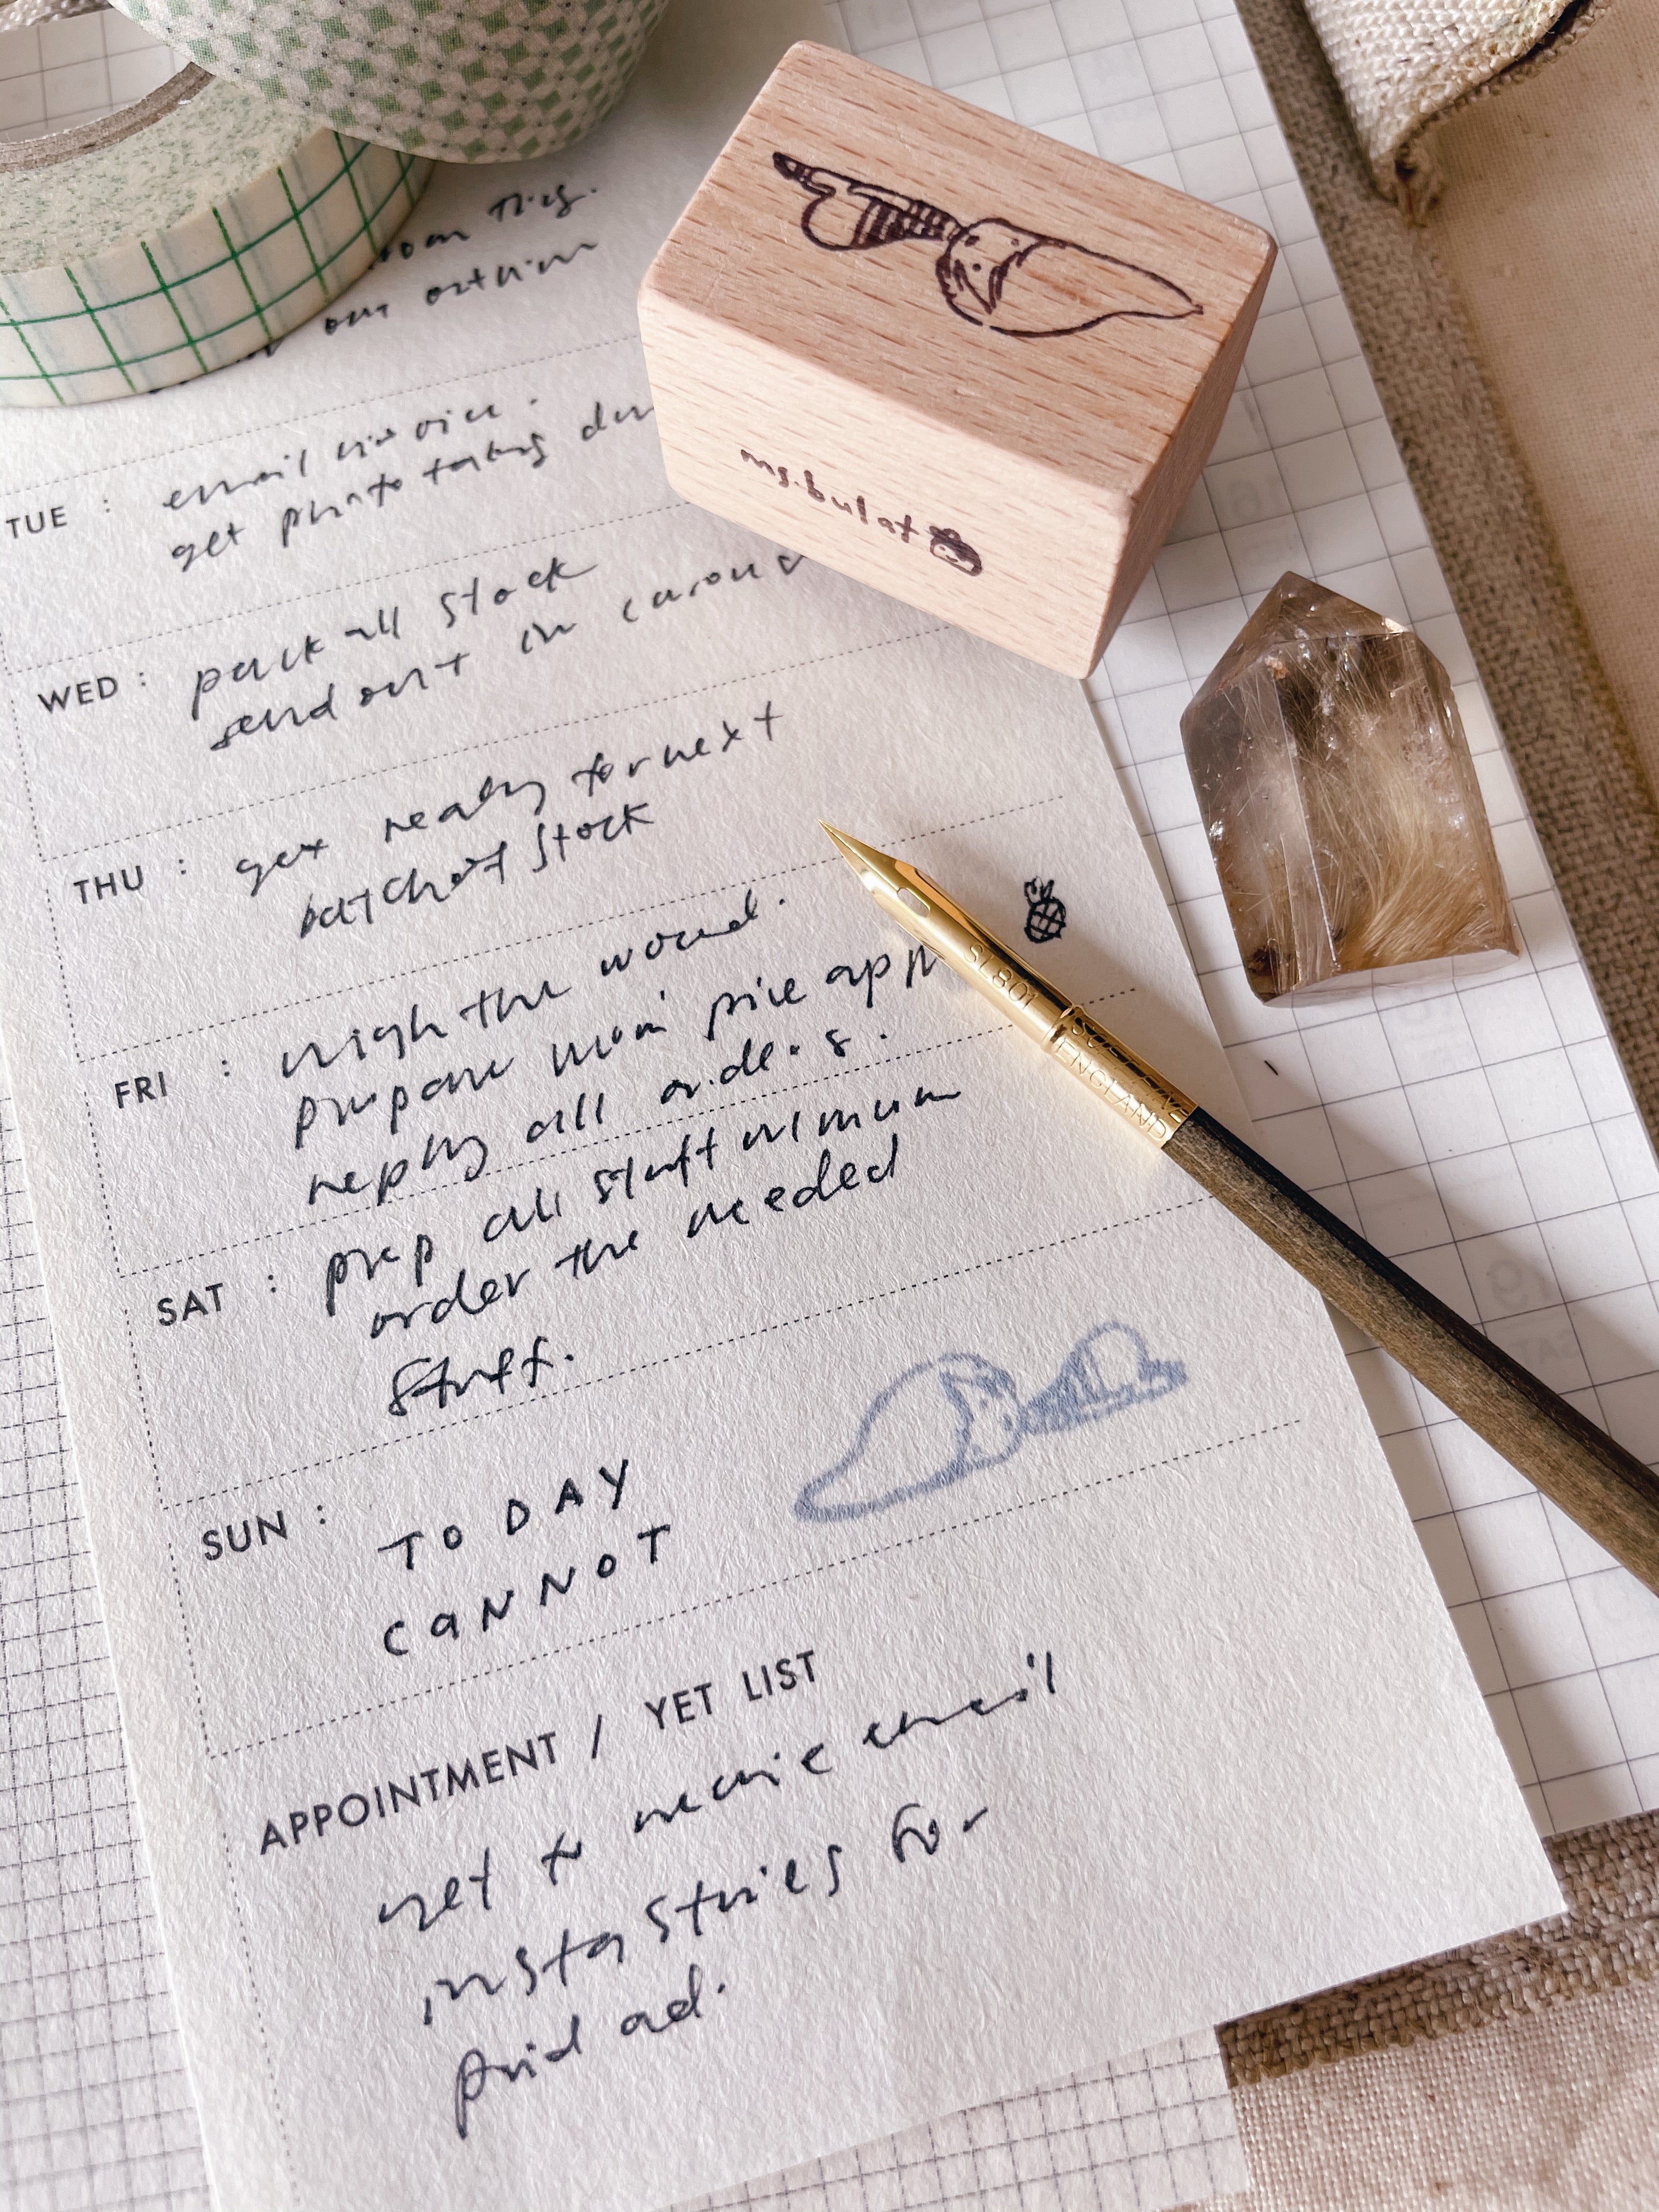 out
TUE : email invoice.
get photo taking
WED : pack all stock
send out in
THU : get ready for next
batch of stock
FRI : weigh the wound.
prepare main price
reply all orders.
SAT : prep all stuff
order the needed
stuff.
SUN : TODAY
CANNOT
APPOINTMENT / YET LIST
yet to receive email
insta stories for
paid ad.
ms.bulat
SL801
ENGLAND